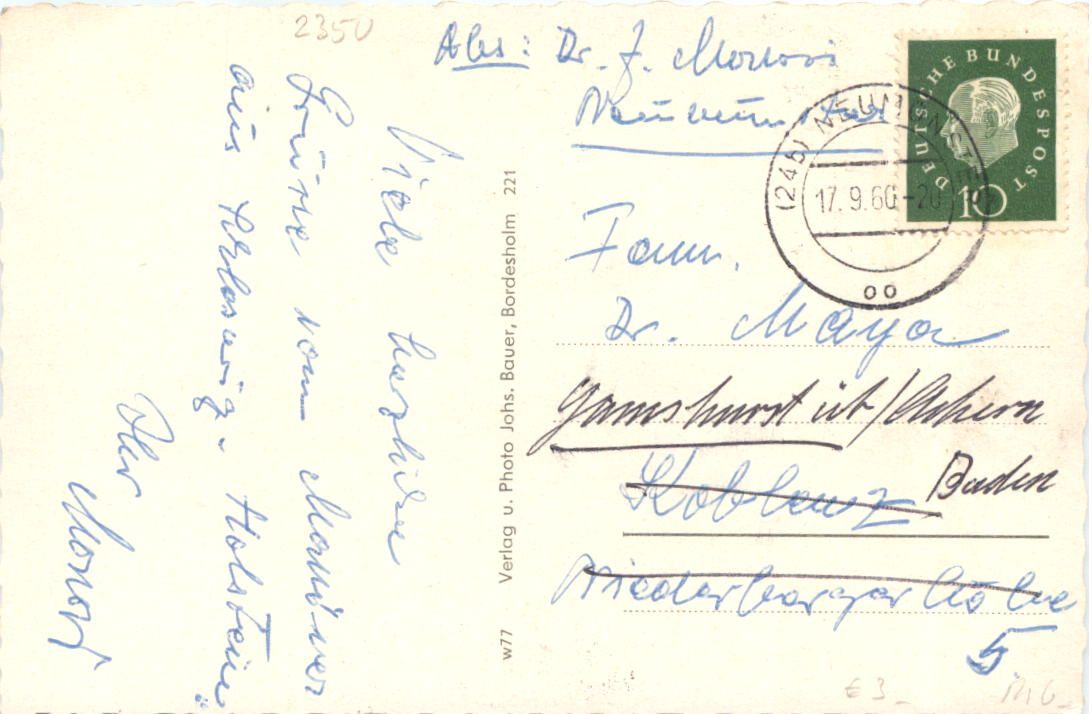 2350
Abs: Dr. J.
Neumünster
DEUTSCHE BUNDESPOST
10
(24b) NEUMÜNSTER
17. 9. 60 - 20
oo
Viele herzliche
Grüsse vom Manöver
aus Schleswig-Holstein!
Ihr
Verlag u. Photo Johs. Bauer, Bordesholm 221
w77
Fam.
Dr. Mayer
Gamshurst üb/Achern
Baden
Koblenz
Niederberger Höhe
5
€ 3